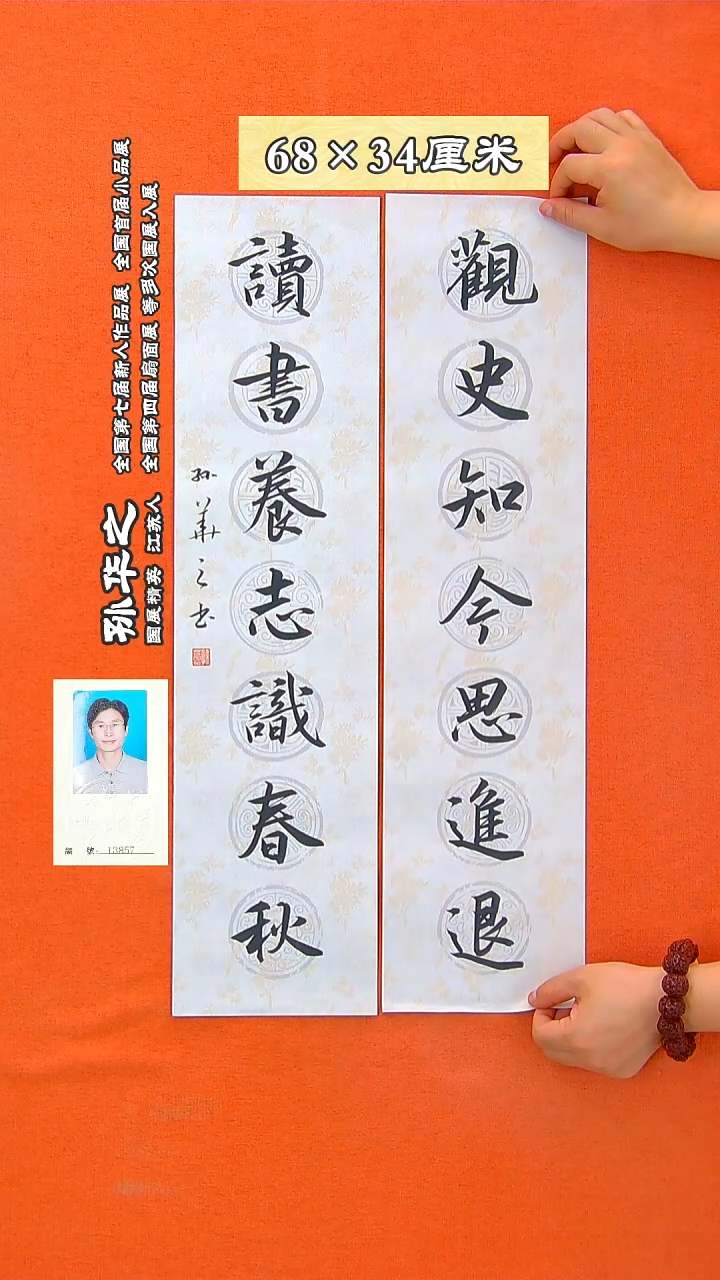 68×34厘米
觀史知今思進退
讀書養志識春秋
孙華之书
全国第七届新人作品展 全国首届小品展
全国第四届扇面展 等多次国展入展
孙华之
国展精英 江苏人
編 號: 13857